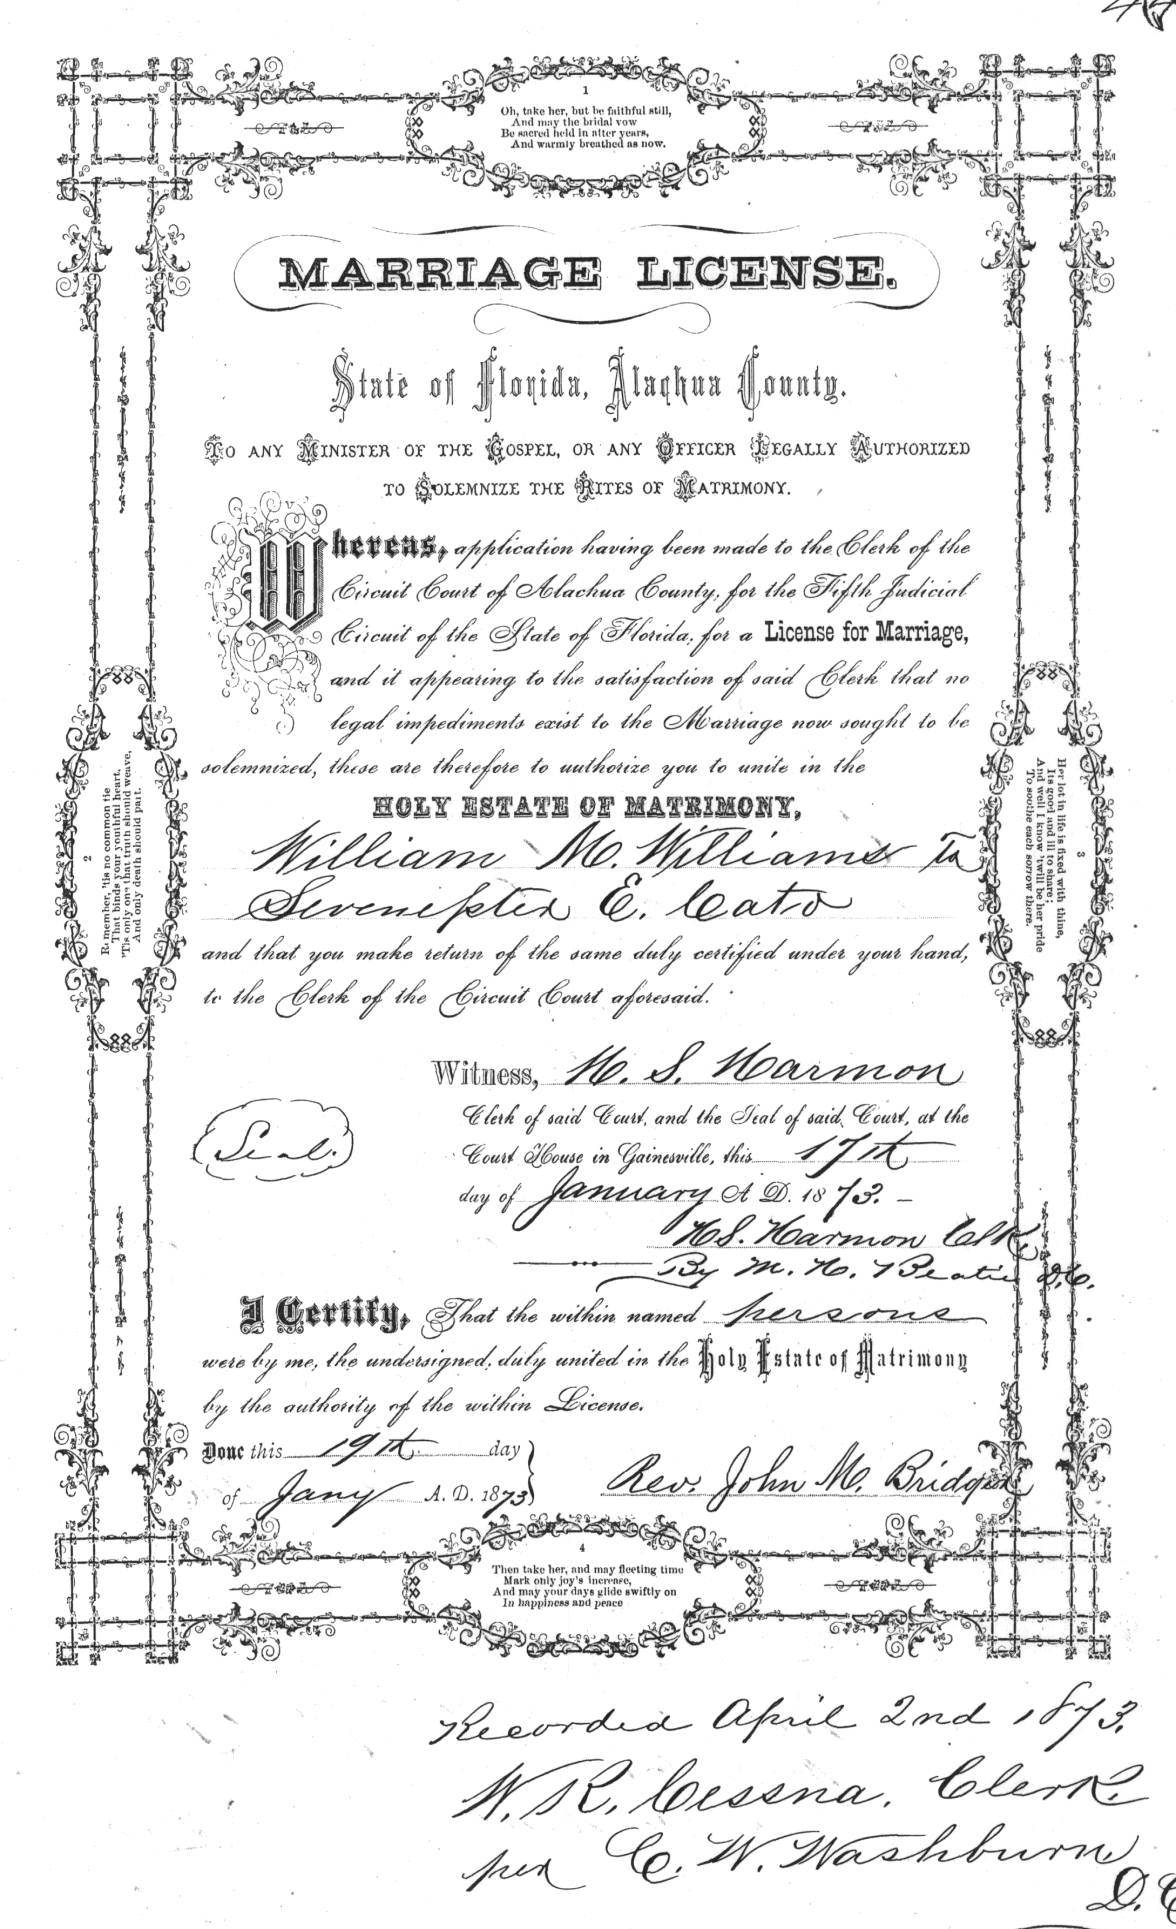 1
Oh, take her, but be faithful still,
And may the bridal vow
Be sacred held in after years,
And warmly breathed as now.
MARRIAGE LICENSE.
State of Florida, Alachua County.
TO ANY MINISTER OF THE GOSPEL, OR ANY OFFICER LEGALLY AUTHORIZED
TO SOLEMNIZE THE RITES OF MATRIMONY.
Whereas, application having been made to the Clerk of the
Circuit Court of Alachua County, for the Fifth Judicial
Circuit of the State of Florida, for a License for Marriage,
and it appearing to the satisfaction of said Clerk that no
legal impediments exist to the Marriage now sought to be
solemnized, these are therefore to authorize you to unite in the
HOLY ESTATE OF MATRIMONY,
William M. Williams To
E. Cato
and that you make return of the same duly certified under your hand,
to the Clerk of the Circuit Court aforesaid.
2
Remember, 'tis no common tie
That binds your youthful heart,
'Tis only one that truth should weave,
And only death should part.
3
Her lot in life is fixed with thine,
Its good and ill to share;
And well I know 'twill be her pride
To soothe each sorrow there.
Witness, H. S. Harmon
Clerk of said Court, and the Seal of said Court, at the
Seal.
Court House in Gainesville, this 17th
day of January A. D. 1873.
H S. Harmon Clk
By M. H. D.C.
I Certify, That the within named persons
were by me, the undersigned, duly united in the Holy Estate of Matrimony
by the authority of the within License.
Done this 19th day
of Jany A. D. 1873
Rev. John M. Bridges
4
Then take her, and may fleeting time
Mark only joy's increase,
And may your days glide swiftly on
In happiness and peace
Recorded April 2nd 1873.
W. R. Cessna, Clerk.
per C. W. Washburn